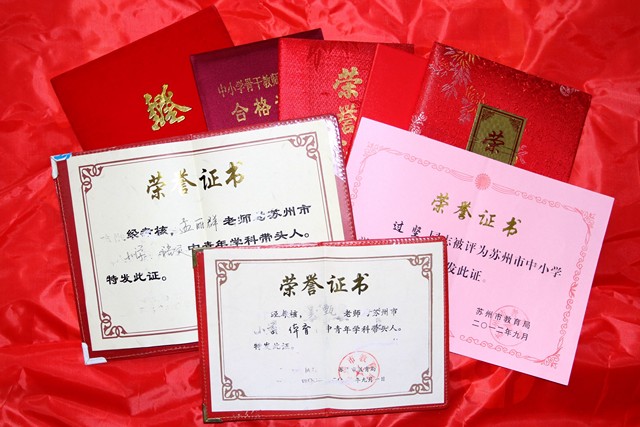 证
中小学骨干教师
合格
荣誉
荣
荣誉证书
经考核,孟丽群老师为苏州市
小学语文中青年学科带头人。
特发此证。
荣誉证书
过坚同志被评为苏州市中小学
发此证。
苏州市教育局
二〇一二年九月
荣誉证书
经考核, 老师 苏州市
小学体育 中青年学科带头人。
特发此证。